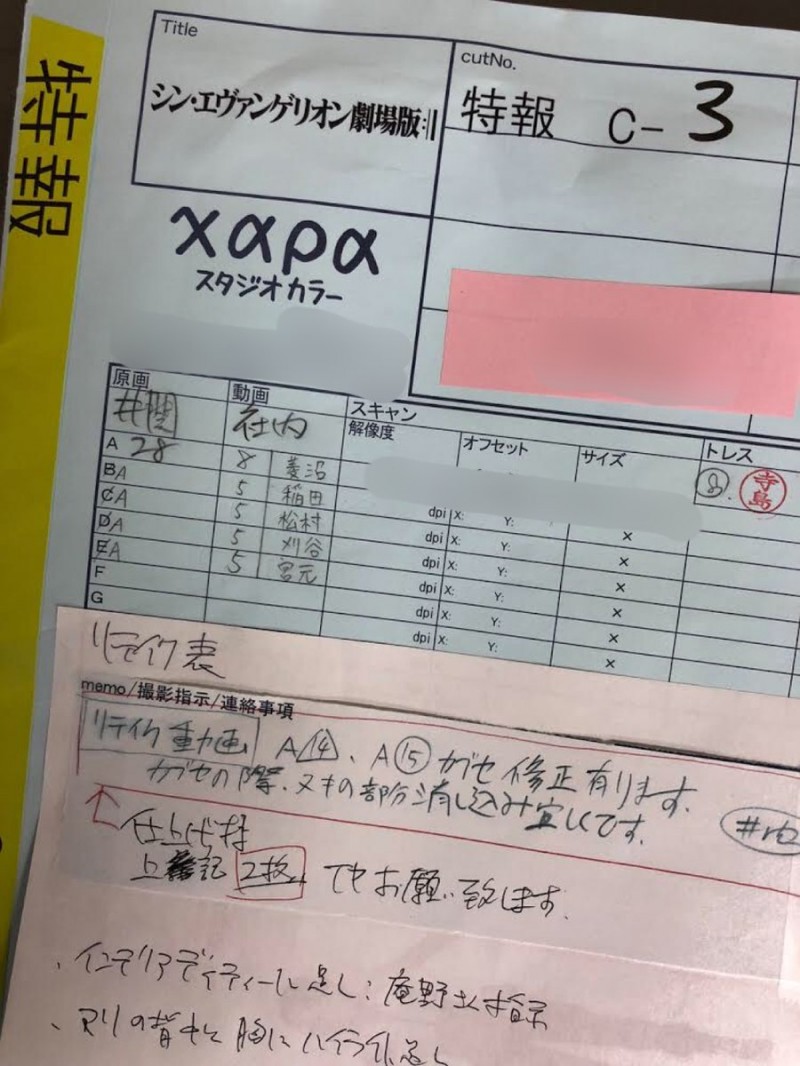 特報
Title
シン・エヴァンゲリオン劇場版:||
cutNo.
特報 C- 3
χαρα
スタジオカラー
原画
動画
スキャン
解像度
オフセット
サイズ
トレス
井関
社内
A 28
8 菱沼
寺島
BA 5 稲田
CA 5 松村
DA 5 刈谷
EA 5 宮元
F
G
dpi X: Y: ×
dpi X: Y: ×
dpi X: Y: ×
dpi X: Y: ×
dpi X: Y: ×
dpi X: Y: ×
リテイク表
memo/撮影指示/連絡事項
リテイク動画 A14、A⑮ カブセ修正有ります。
カブセの際、ヌキの部分消し込み宜しくです。
仕上げ様
上記2枚 お願い致します。
、インテリアディティール足し:庵野
、マリの背中と胸にハイライト足し